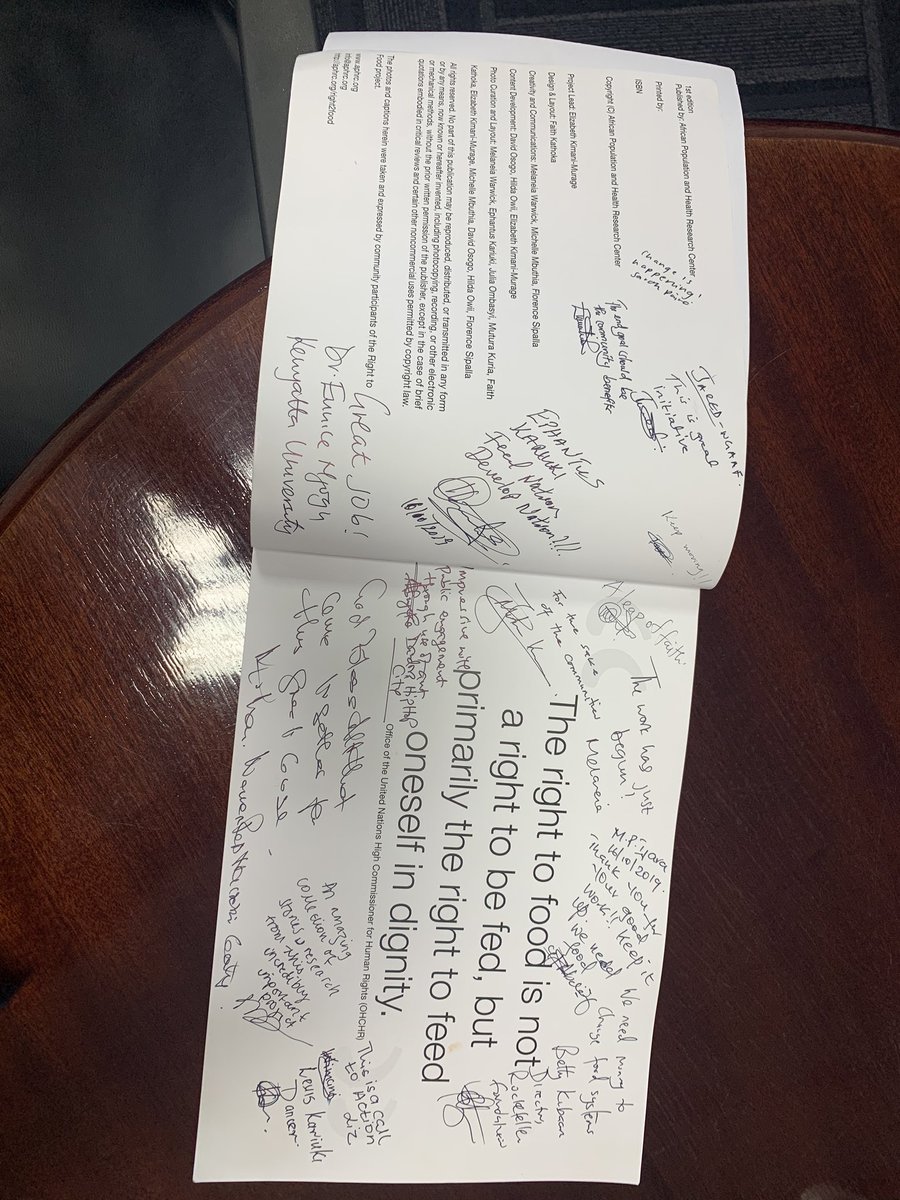 1st edition
Published by: African Population and Health Research Center
Printed by:
ISBN
Copyright (C) African Population and Health Research Center
Project Lead: Elizabeth Kimani-Murage
Design & Layout: Faith Kathoka
Creativity and Communications: Melaneia Warwick, Michelle Mbuthia, Florence Sipalla
Content Development: David Osogo, Hilda Owii, Elizabeth Kimani-Murage
Photo Curation and Layout: Melaneia Warwick, Ephantus Kariuki, Julia Ombasyi, Mutura Kuria, Faith
Kathoka, Elizabeth Kimani-Murage, Michelle Mbuthia, David Osogo, Hilda Owii, Florence Sipalla
All rights reserved. No part of this publication may be reproduced, distributed, or transmitted in any form
or by any means, now known or hereafter invented, including photocopying, recording, or other electronic
or mechanical methods, without the prior written permission of the publisher, except in the case of brief
quotations embodied in critical reviews and certain other noncommercial uses permitted by copyright law.
The photos and captions herein were taken and expressed by community participants of the Right to
Food project.
www.aphrc.org
info@aphrc.org
http://aphrc.org/right2food
change's
happening!
The end goal should be
the community benefits
This is great
Initiative
Keep moving!!
EPHANTUS
KARIUKI
Feed Nation,
Develop Nation!!!
16/10/2019
Great Job!
Dr. Eunice
Kenyatta University
A leap of faith.
The work has just
begun!!
for the sake
of the communities
Melaneia
16/10/2019.
Thank you for
your good
work!! Keep it
up we need
food
We need money to
change food systems
Betty Kibaara
Director,
Rockefeller
Foundation
The right to food is not
a right to be fed, but
primarily the right to feed
oneself in dignity.
Office of the United Nations High Commissioner for Human Rights (OHCHR)
Impressive
public engagement
through use of art
God bless all that
came together for
this great cause
An amazing
collection of
stories & research
from this
incredibly
important
project
This is a call
to Action
Liz
Kimani
Lewis Kariuki
Dancer.